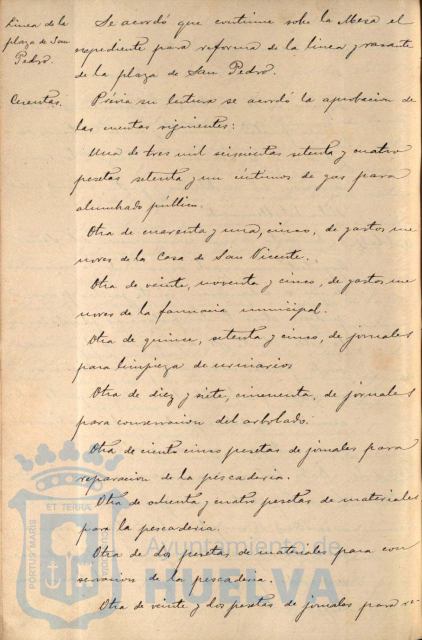 Linea de la
plaza de San
Pedro.
Se acordó que continue sobe la Mesa el
expediente para reforma de la linea y rasante
de la plaza de San Pedro.
Cuentas.
Prévia su lectura se acordó la aprobacion de
las cuentas siguientes:
Una de tres mil seiscientas setenta y cuatro
pesetas setenta y un céntimos de gas para
alumbrado público.
Otra de cuarenta y una, cinco, de gastos me
nores de la Casa de San Vicente.
Otra de veinte, noventa y cinco, de gastos me
nores de la farmacia municipal.
Otra de quince, setenta y cinco, de jornales
para limpieza de urinarios
Otra de diez y siete, cincuenta, de jornales
para conservacion del arbolado.
Otra de ciento cinco pesetas de jornales para
reparacion de la pescaderia.
Otra de ochenta y cuatro pesetas de materiales
para la pescaderia.
Otra de dos pesetas de materiales para con
servacion de la pescaderia.
Otra de veinte y dos pesetas de jornales para re-
PORTUS MARIS
ET TERRÆ
CUSTODIA
Ayuntamiento de
HUELVA